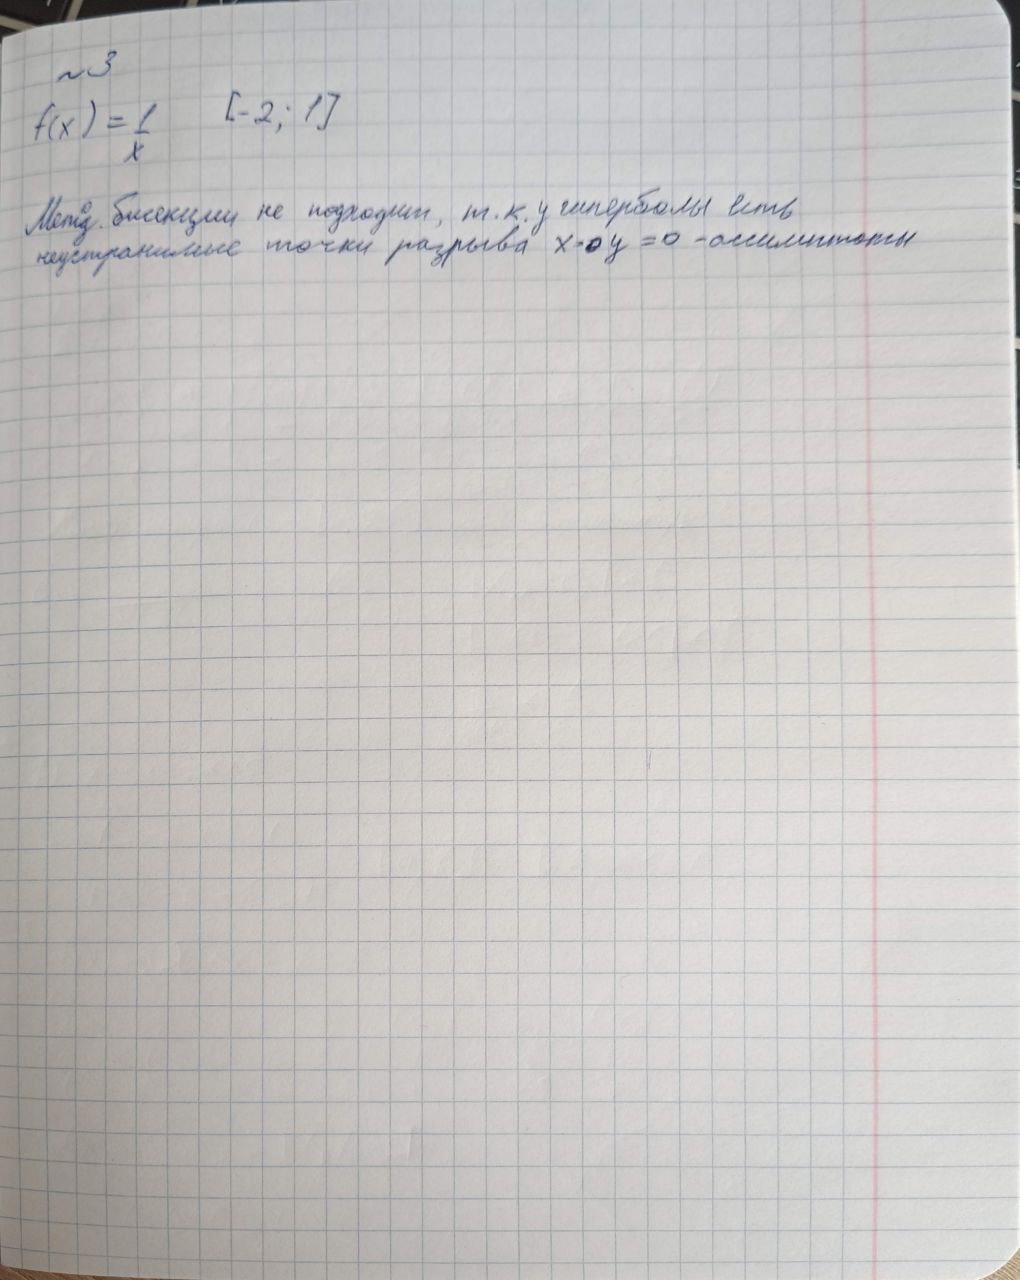 ~3
f(x) = 1/x [-2; 1]
Метод бисекции не подходит, т.к. у гиперболы есть
неустранимые точки разрыва x=0 y=0 - ассимптоты